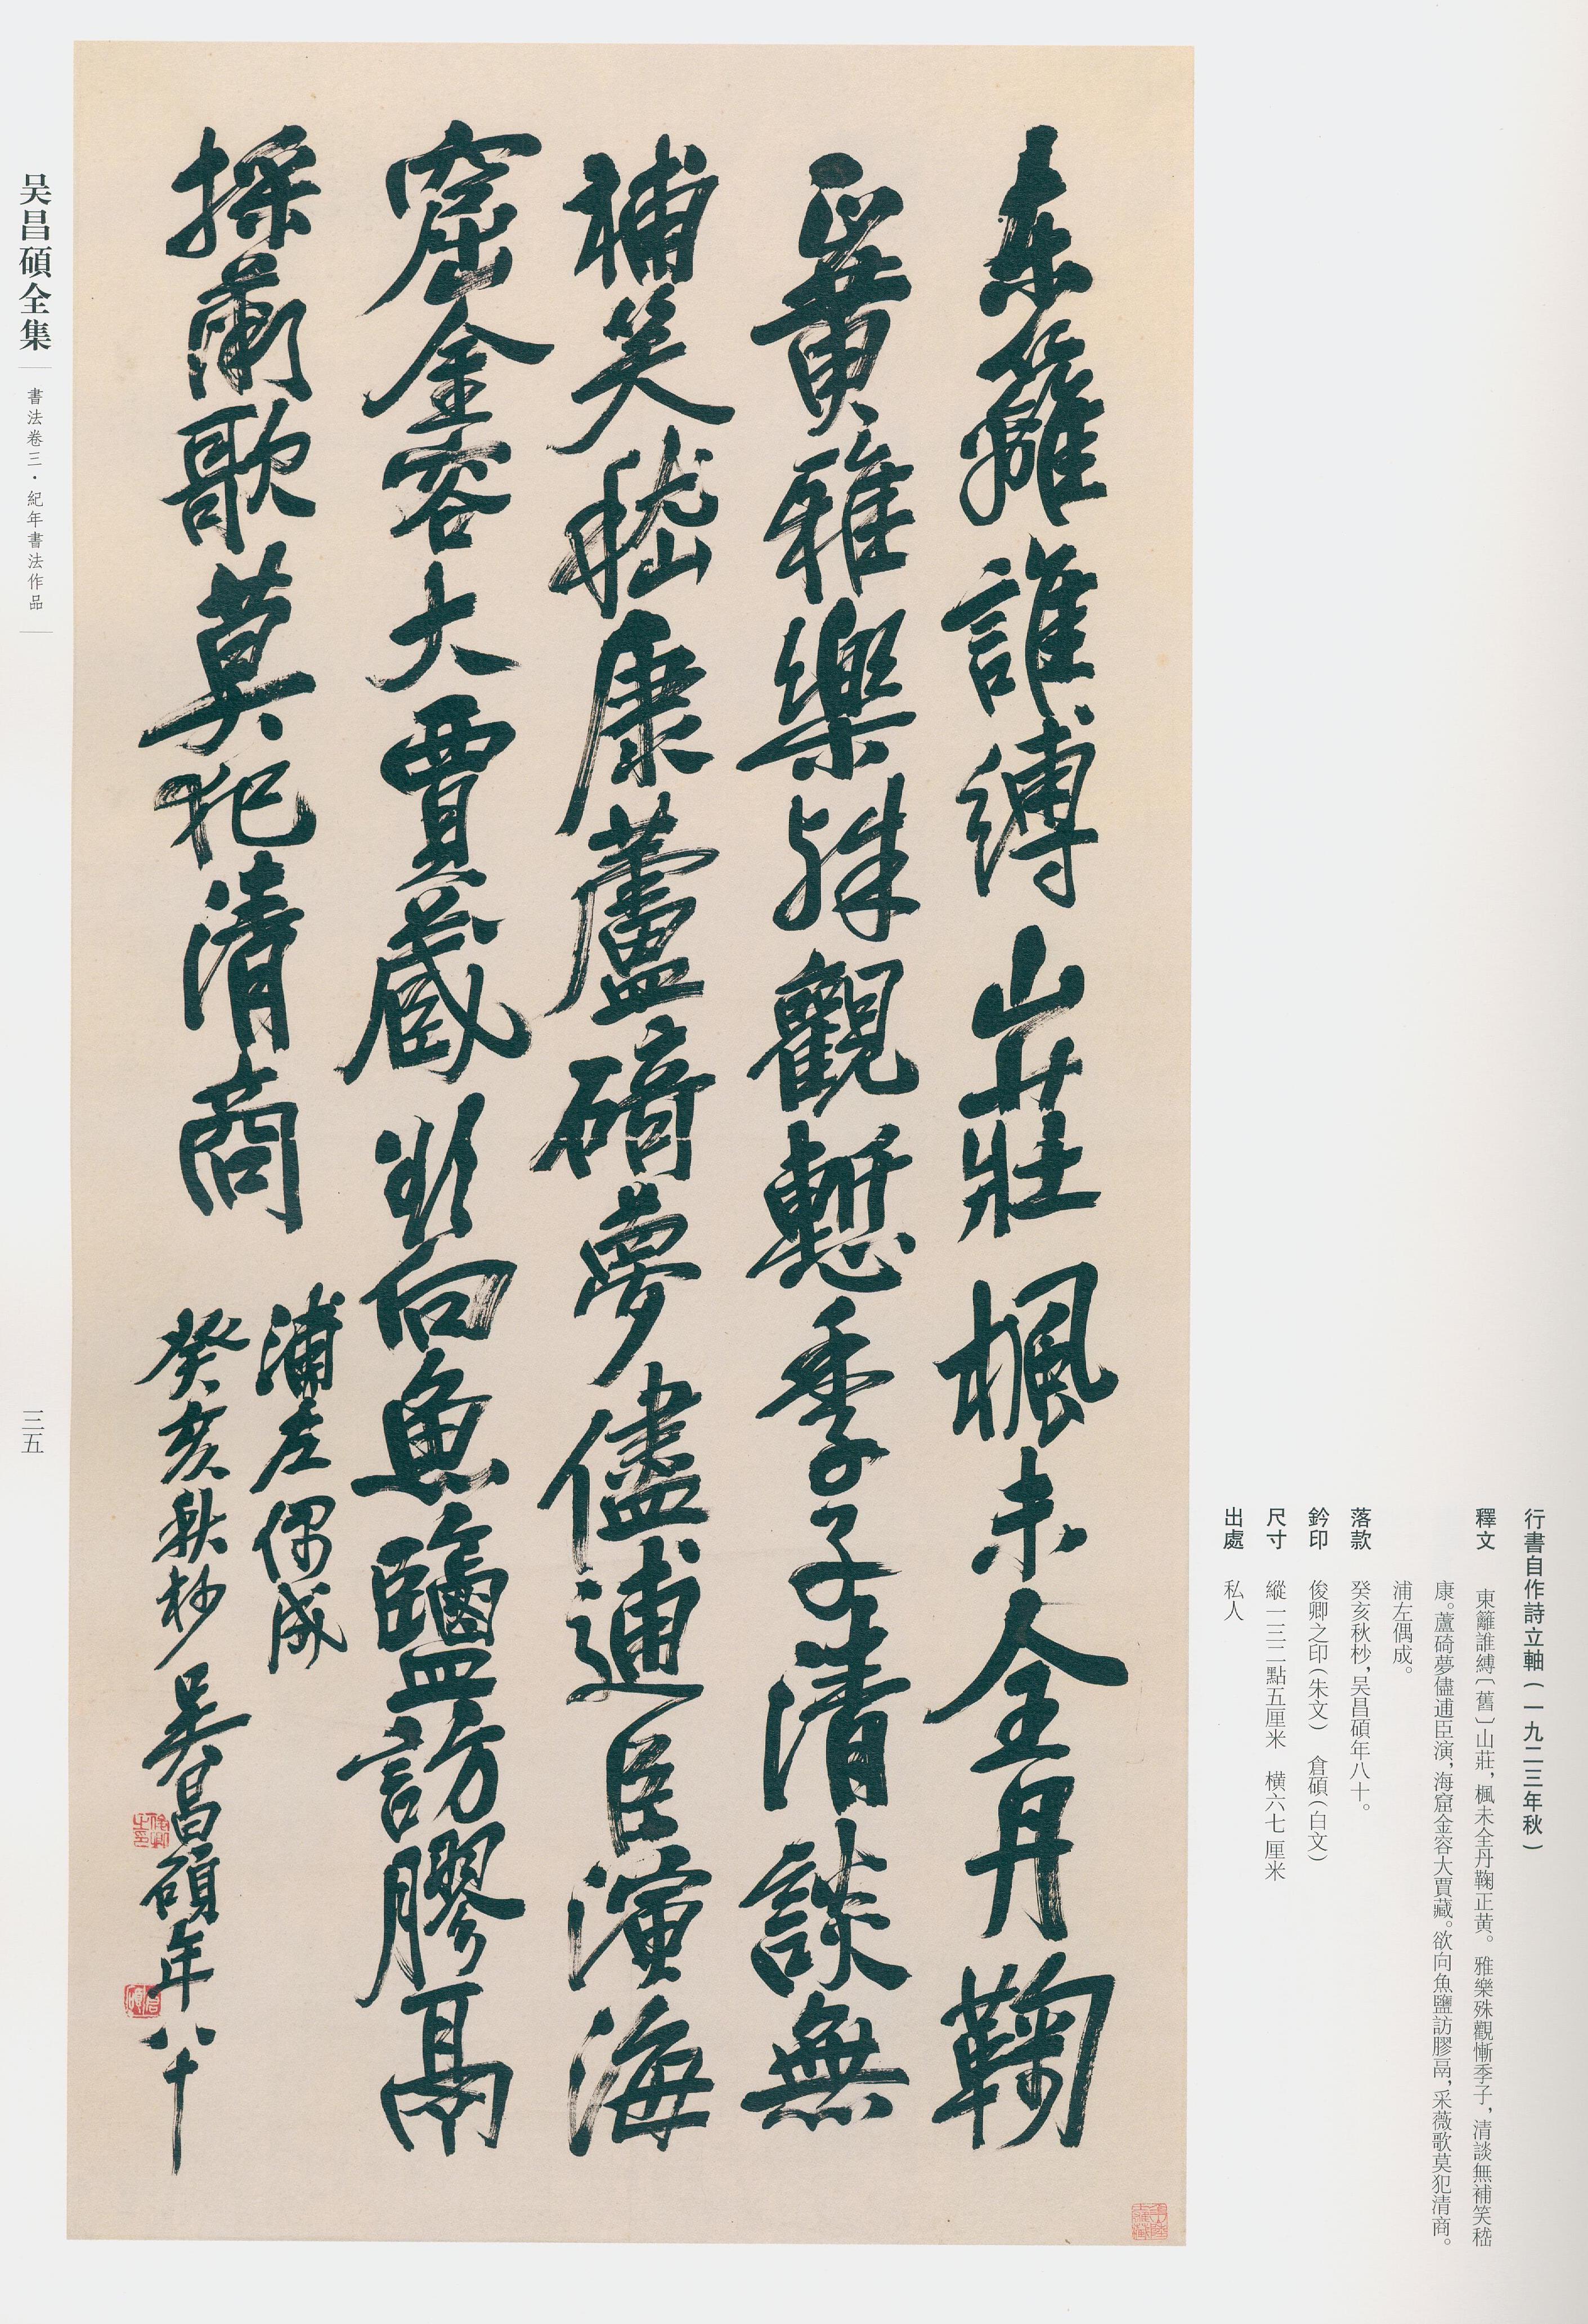 行書自作詩立軸（一九二三年秋）
釋文　東籬誰縛〔舊〕山莊，楓未全丹鞠正黄。雅樂殊觀慚季子，清談無補笑嵇
康。蘆碕夢儘逋臣演，海窟金容大賈藏。欲向魚鹽訪膠鬲，采薇歌莫犯清商。
浦左偶成。
落款　癸亥秋杪，吴昌碩年八十。
鈐印　俊卿之印（朱文）　倉碩（白文）
尺寸　縱一三二點五厘米　橫六七厘米
出處　私人
東籬誰縛山莊楓未全丹鞠
正黄雅樂殊觀慙季子清談無
補笑嵇康蘆碕夢儘逋臣演海
窟金容大賈藏欲向魚鹽訪膠鬲
採薇歌莫犯清商
浦左偶成
癸亥秋杪吴昌碩年八十
俊卿之印
倉碩
吴昌碩全集
書法卷三・紀年書法作品
三五